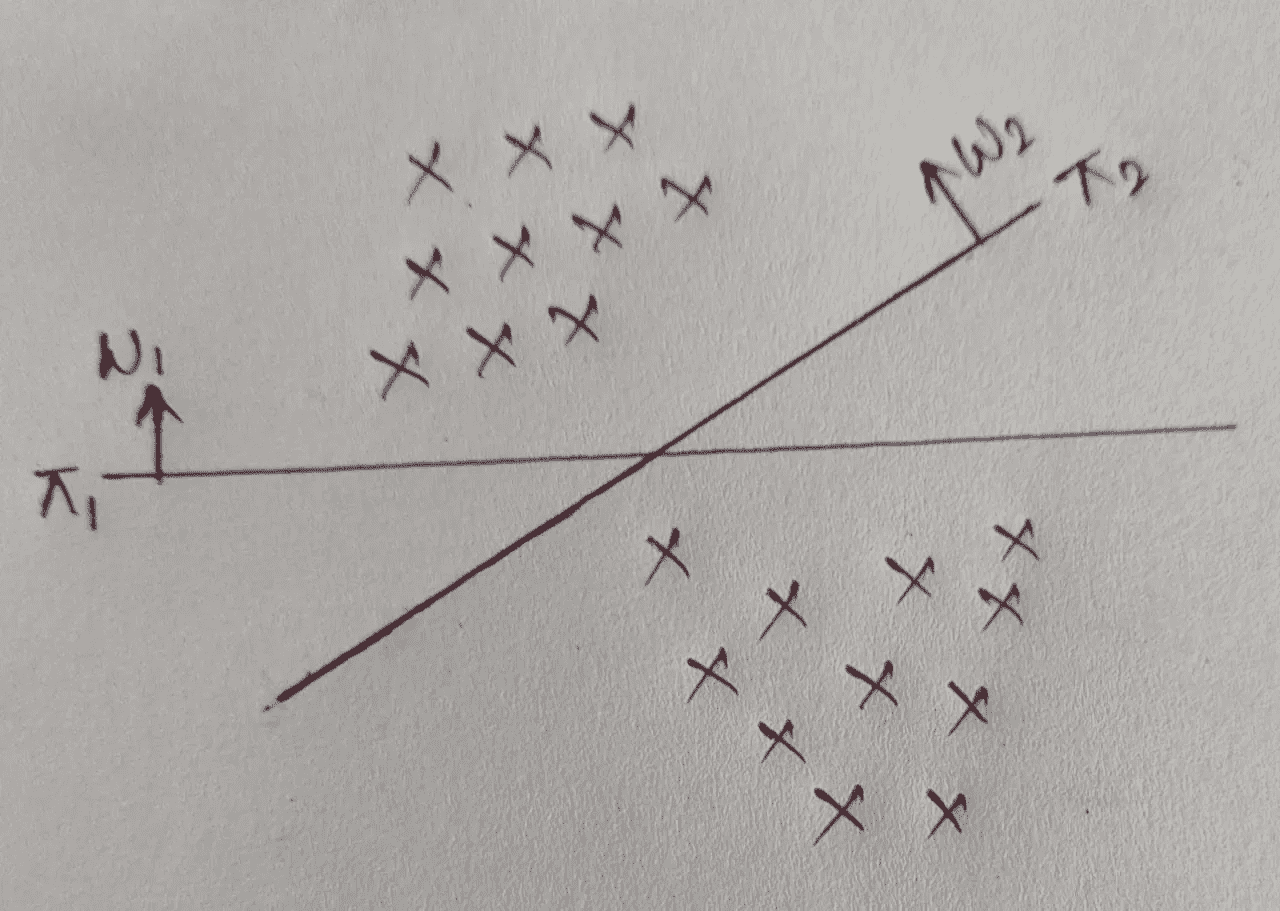 W2
π2
W1
π1